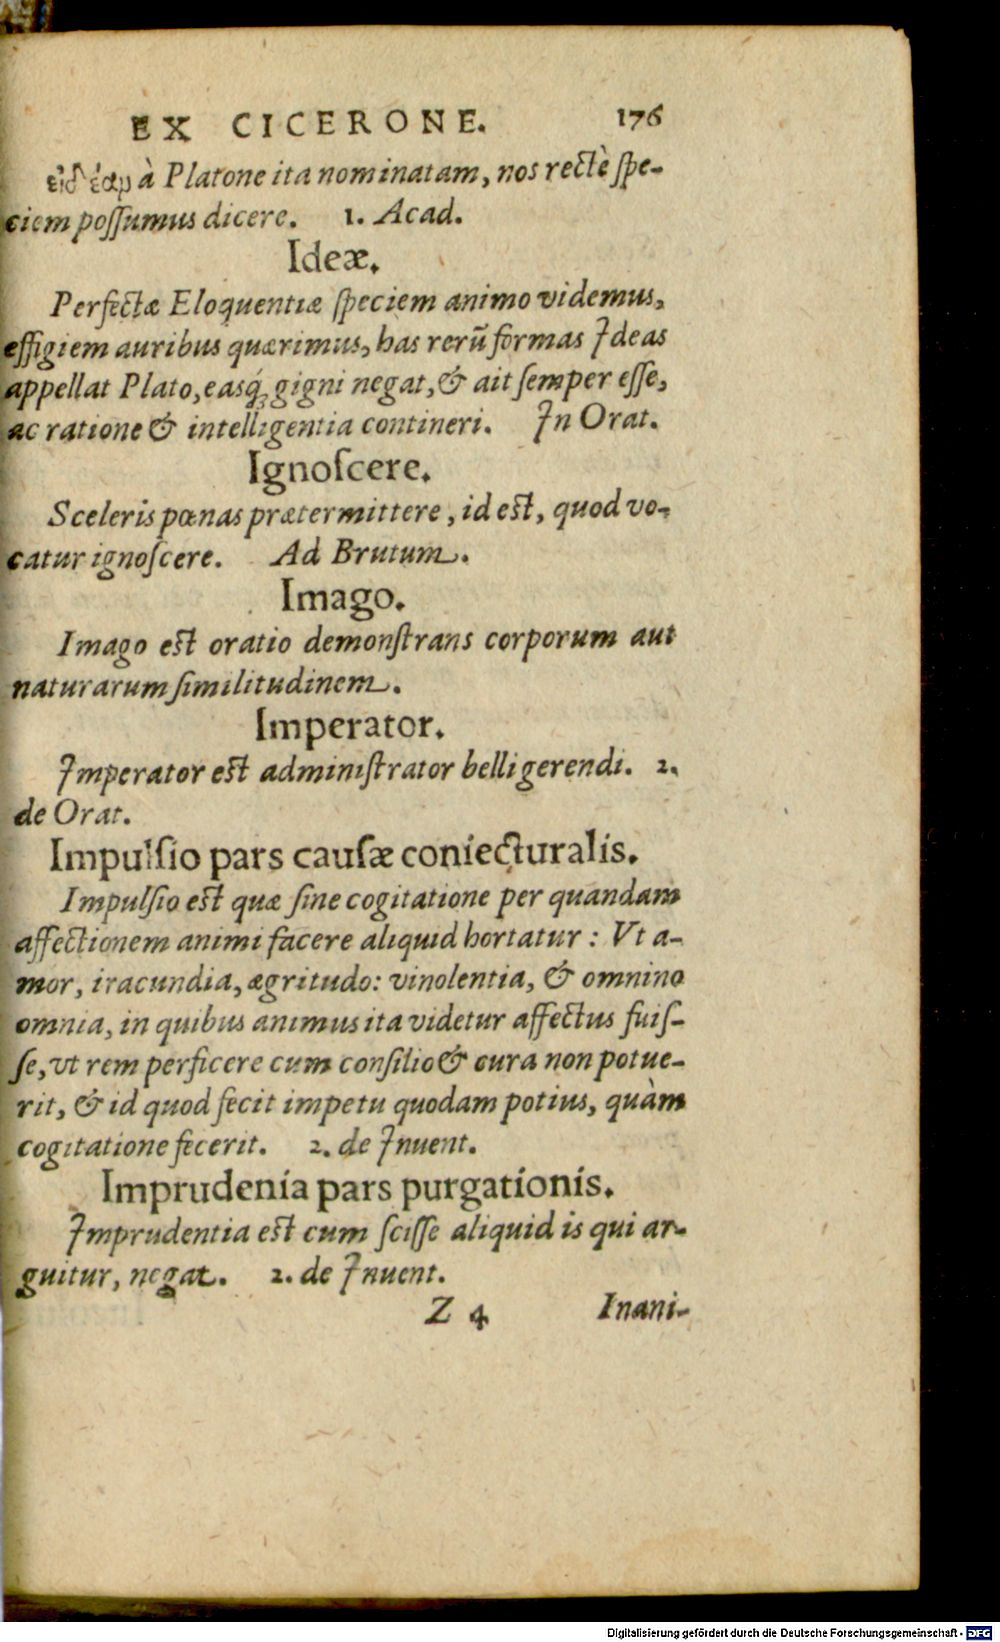 EX CICERONE. 176
εἰδέαμ à Platone ita nominatam, nos rectè ſpe-
ciem poſſumus dicere. 1. Acad.
Ideæ.
Perfectæ Eloquentiæ ſpeciem animo videmus,
effigiem auribus quærimus, has rerū formas Ideas
appellat Plato, easq́ꝫ gigni negat, & ait ſemper eſſe,
ac ratione & intelligentia contineri. In Orat.
Ignoſcere.
Sceleris pœnas prætermittere, id est, quod vo-
catur ignoſcere. Ad Brutum.
Imago.
Imago est oratio demonſtrans corporum aut
naturarum ſimilitudinem.
Imperator.
Imperator est adminiſtrator belli gerendi. 2.
de Orat.
Impulſio pars cauſæ coniecturalis.
Impulſio est quæ ſine cogitatione per quandam
affectionem animi facere aliquid hortatur: Vt a-
mor, iracundia, ægritudo: vinolentia, & omnino
omnia, in quibus animus ita videtur affectus fuiſ-
ſe, vt rem perficere cum conſilio & cura non potue-
rit, & id quod fecit impetu quodam potius, quàm
cogitatione fecerit. 2. de Inuent.
Imprudenia pars purgationis.
Imprudentia est cum ſciſſe aliquid is qui ar-
guitur, negat. 2. de Inuent.
Z 4 Inani-
Digitalisierung gefördert durch die Deutsche Forschungsgemeinschaft - DFG